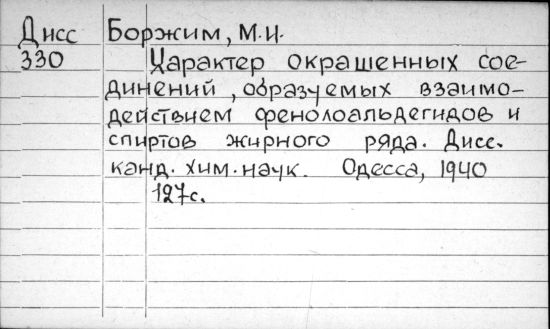 Дисс Боржим, М.И.
330 Характер окрашенных сое-
динений, образуемых взаимо-
действием фенолоальдегидов и
спиртов жирного ряда. Дисс.
канд. хим. наук. Одесса, 1940
127с.